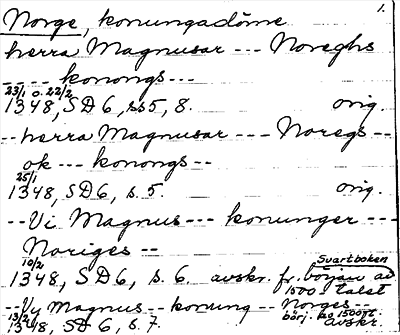 1.
Norge, konungadöme
herra Magnusar --- Noreghs
---- konongs ---
23/1 o. 22/2
1348, SD 6, ss 5, 8. orig.
-- herra Magnusar --- Noregs --
ok --- konongs --
25/1
1348, SD 6, s. 5. orig.
-- Vi Magnus --- konunger ---
Noriges --
Svartboken
10/2
1348, SD 6, s. 6. avskr. fr. början av
1500 talet
-- Vy Magnus -- konung -- Norges --
13/2 börj. av 1500 t.
1348, SD 6, s. 7. avskr.